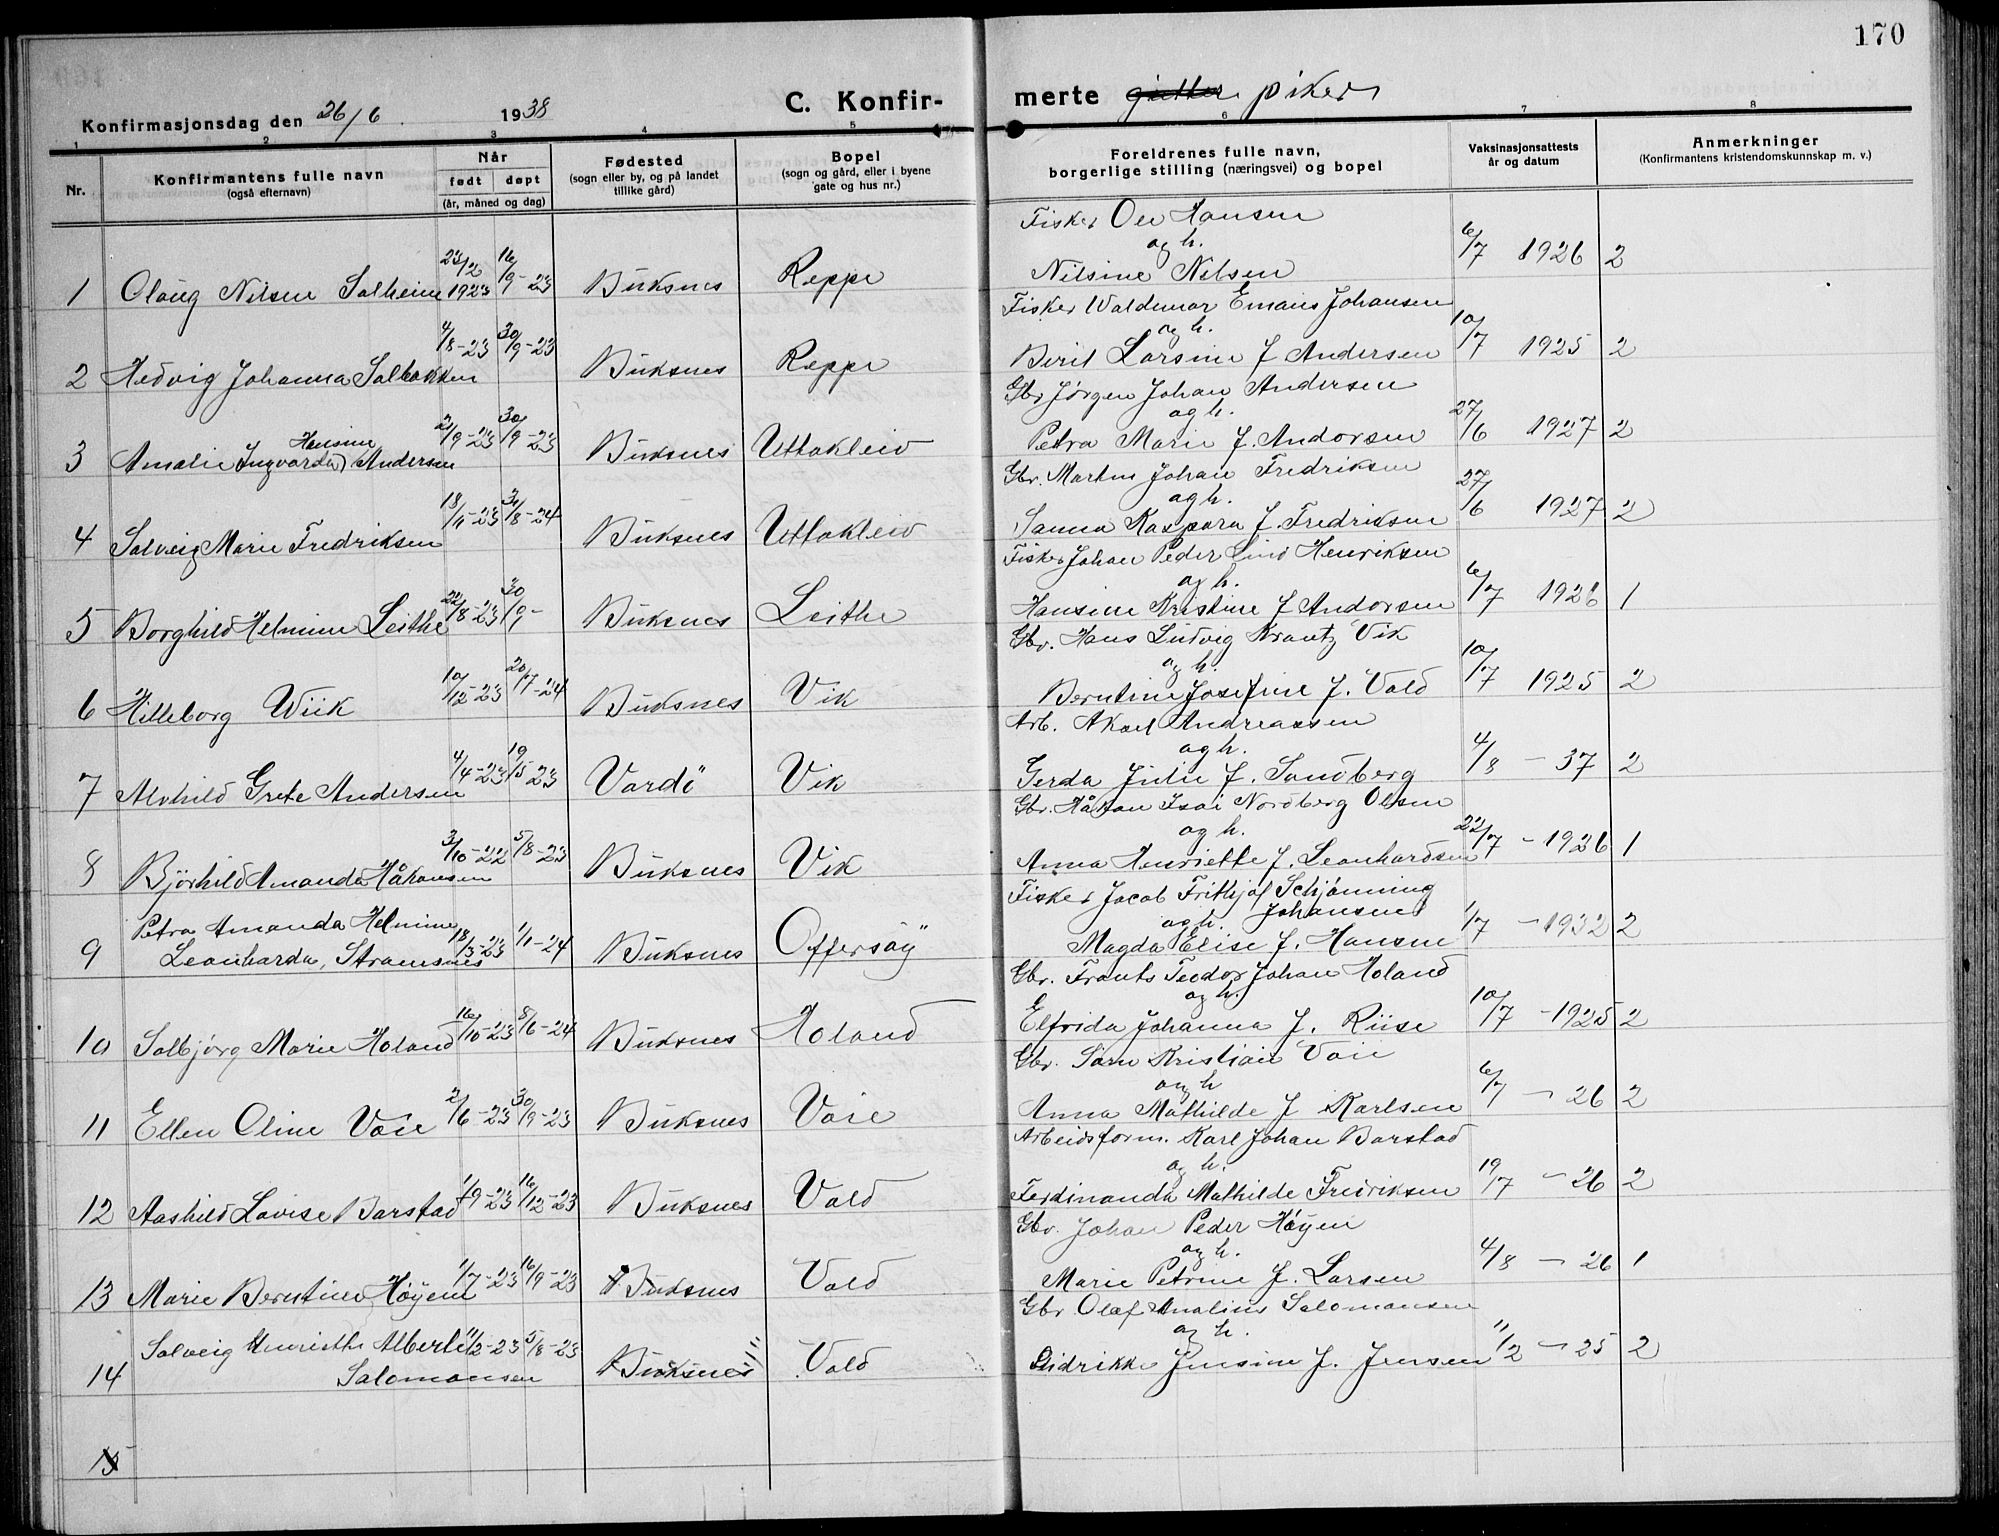 170
C. Konfir- merte gutter piker
Konfirmasjonsdag den 26/6 1938
1 2 3 4 5 6 7 8
Nr.
Konfirmantens fulle navn
(også efternavn)
Når
født døpt
(år, måned og dag)
Fødested
(sogn eller by, og på landet
tillike gård)
Bopel
(sogn og gård, eller i byene
gate og hus nr.)
Foreldrenes fulle navn,
borgerlige stilling (næringsvei) og bopel
Vaksinasjonsattests
år og datum
Anmerkninger
(Konfirmantens kristendomskunnskap m. v.)
Fisker Ole Hansen
og h.
1 Olaug Nilsen Solheim 23/2 1923 16/9-23 Buksnes Reppe Nilsine Nilsen 6/7 1926 2
Fisker Waldemar Emaus Johansen
og h.
2 Hedvig Johanna Solbakken 4/8-23 30/9-23 Buksnes Reppe Beril Larsine f Andersen 10/7 1925 2
Gbr. Jørgen Johan Andersen
og h.
Hansine
3 Amalie Ingvarda Andersen 2/9-23 30/9-23 Buksnes Uttakleiv Petra Marie f. Andorsen 27/6 1927 2
Gbr. Martin Johan Fredriksen
og h.
4 Solveig Marie Fredriksen 18/11-23 31/8-24 Buksnes Uttakleiv Sanna Kaspara f. Fredriksen 27/6 1927 2
Fisker Johan Peder Lind Henriksen
og h.
5 Borghild Helmine Leithe 22/8-23 30/9- Buksnes Leithe Hansine Kristine f Andorsen 6/7 1926 1
Gbr. Hans Ludvig Krantz Vik
og h.
6 Hilleborg Wiik 10/12-23 20/7-24 Buksnes Vik Berntine Josefine f. Vold 10/7 1925 2
Arb. Aksel Andreassen
og h.
7 Alvhild Grete Andersen 4/4-23 19/5-23 Vardö Vik Gerda Julie f. Sandberg 4/8 - 37 2
Gbr. Håkon Isai Nordberg Olsen
og h.
8 Bjørhild Amanda Håkonsen 3/10-22 5/8-23 Buksnes Vik Anna Henriette f. Leonhardsen 22/7 - 1926 1
Fisker Jacob Frithjof Schjønning
Johansen
og h.
9 Petra Amanda Helmine
Leonharda, Stramsnes 18/3-23 1/1-24 Buksnes Offersøy Magda Elise f. Hansen 1/7 - 1932 2
Gbr. Frants Teodor Johan Holand
og h.
10 Solbjørg Marie Holand 16/10-23 8/6-24 Buksnes Holand Elfrida Johanna f. Riise 10/7 - 1925 2
Gbr. Sørn Kristian Voie
og h
11 Ellen Oline Voie 2/6-23 30/9-23 Buksnes Voie Anna Mathilde f Karlsen 6/7 - 26 2
Arbeidsform. Karl Johan Barstad
og h.
12 Aashild Lovise Barstad 1/9-23 16/12-23 Buksnes Vold Ferdinanda Mathilde Fredriksen 19/7 - 26 2
Gbr. Johan Peder Høyen
og h.
13 Marie Berntine Høyen 1/7-23 16/9-23 Buksnes Vold Marie Petrine f. Larsen 4/8 - 26 1
Gbr. Olaf Analius Salomonsen
og h.
14 Solveig Henriette Alberte
Salomonsen 11/2-23 5/8-23 Buksnes Vold Didrikke Jensine f. Jensen 11/2 - 25 2
15